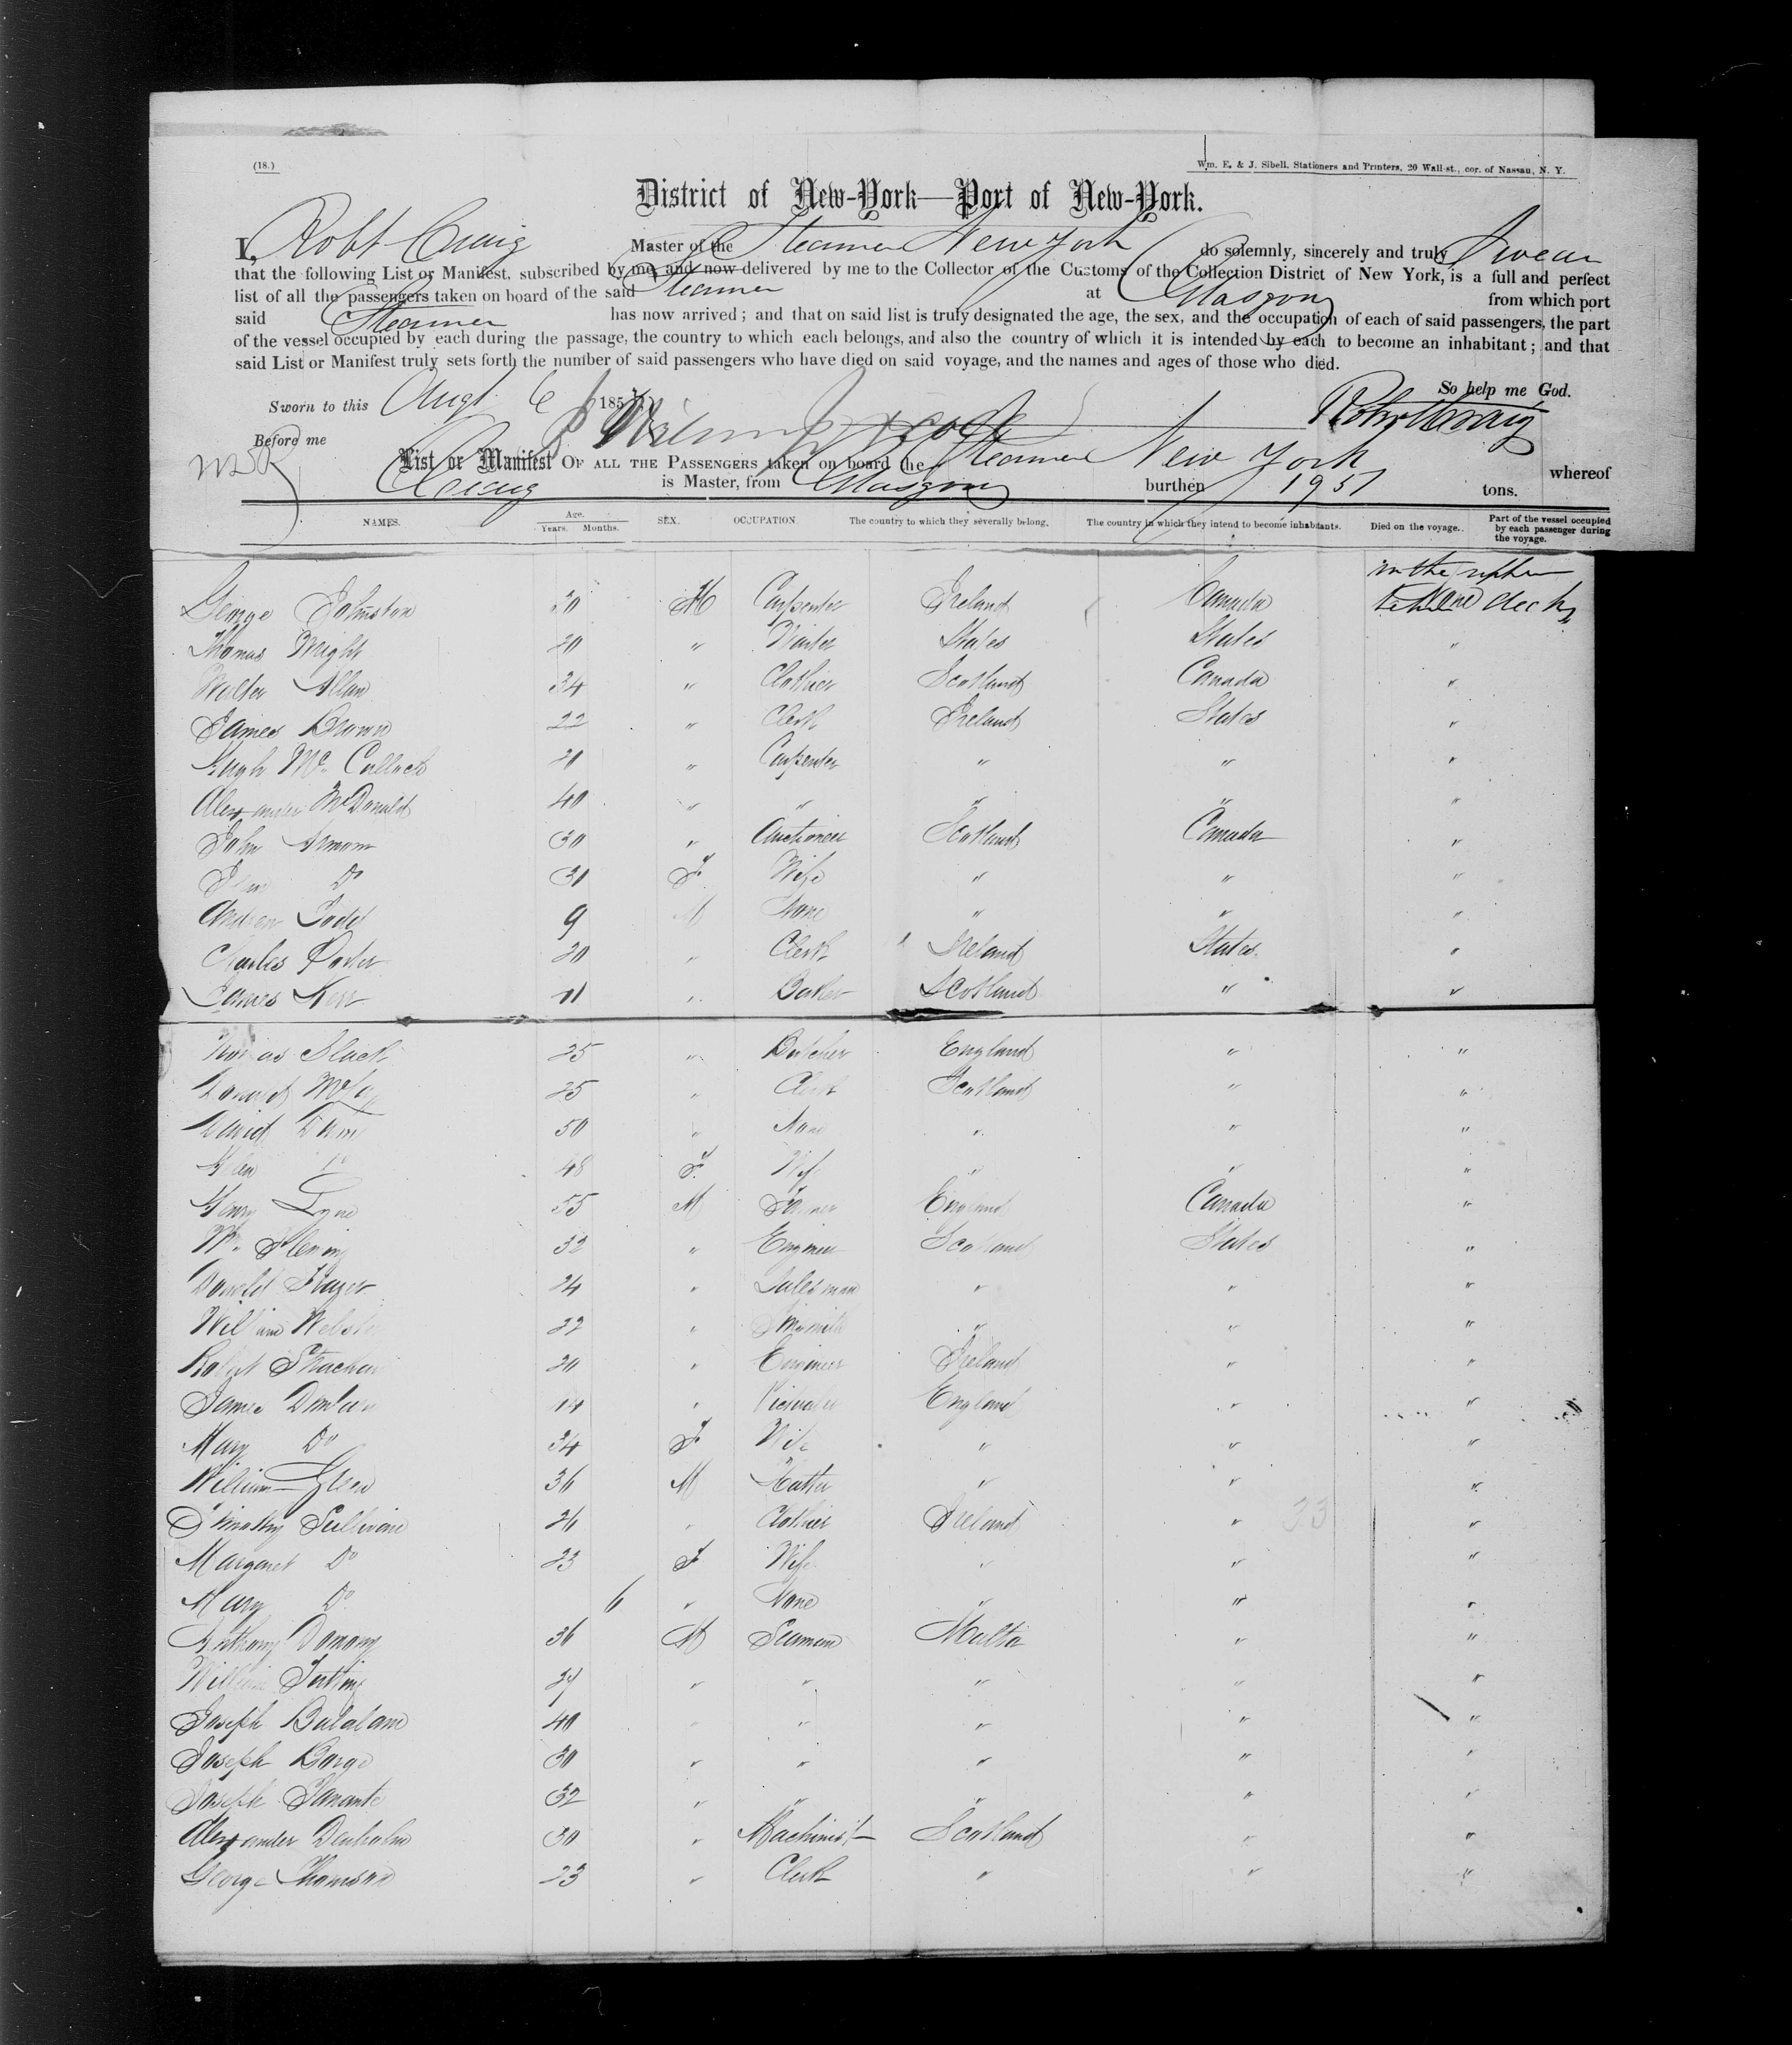 (18.)
Wm. E. & J. Sibell, Stationers and Printers, 20 Wall-st., cor. of Nassau, N. Y.
District of New-York—Port of New-York.
I, Robt Craig Master of the Steamer New York do solemnly, sincerely and truly Swear
that the following List or Manifest, subscribed by me, and now delivered by me to the Collector of the Customs of the Collection District of New York, is a full and perfect
list of all the passengers taken on board of the said Steamer at Glasgow from which port
said Steamer has now arrived; and that on said list is truly designated the age, the sex, and the occupation of each of said passengers, the part
of the vessel occupied by each during the passage, the country to which each belongs, and also the country of which it is intended by each to become an inhabitant; and that
said List or Manifest truly sets forth the number of said passengers who have died on said voyage, and the names and ages of those who died.
So help me God.
Sworn to this Augt 6 185
Before me
List or Manifest OF ALL THE PASSENGERS taken on board the Steamer New York whereof
Craig is Master, from Glasgow burthen 1951 tons.
NAMES. Age. Years. Months. SEX. OCCUPATION. The country to which they severally belong. The country in which they intend to become inhabitants. Died on the voyage. Part of the vessel occupied by each passenger during the voyage.
in the upper
George Johnston 30 M Carpenter Ireland Canada None deck
Thomas Wright 20 " States States "
Walter Allan 34 " Clothier Scotland Canada "
James Brown 22 " Clerk Ireland States "
Hugh Mc Culloch 20 " Carpenter " " "
Alexander McDonald 40 " " " " "
John 30 " Auctioneer Scotland Canada "
Do 31 F Wife " " "
Andrew Todd 9 M None " " "
Charles Porter 20 " Clerk Ireland States "
James Kerr 21 " Baker Scotland " "
Slack 25 " Butcher England " "
Donald 25 " Clerk Scotland " "
David 50 " None " " "
Do 48 F Wife " " "
Henry 55 M Farmer England Canada "
Wm Fleming 32 " Engineer Scotland States "
Donald Frazer 24 " Salesman " " "
William Webster 22 " Tinsmith " " "
Robert Strachan 20 " Engineer Ireland " "
James " England " "
Mary Do 34 F Wife " " "
William Green 36 M Hatter " " "
Timothy Sullivan 26 " Clothier Ireland " 33 "
Margaret Do 23 F Wife " " "
Mary Do 6 " None " " "
Anthony 36 M Seaman Malta " "
William " " " " "
Joseph 40 " " " " "
Joseph Borge 30 " " " " "
Joseph 32 " " " " "
Alexander Denholm 30 " Machinist Scotland " "
George Thomson 23 " Clerk " " "